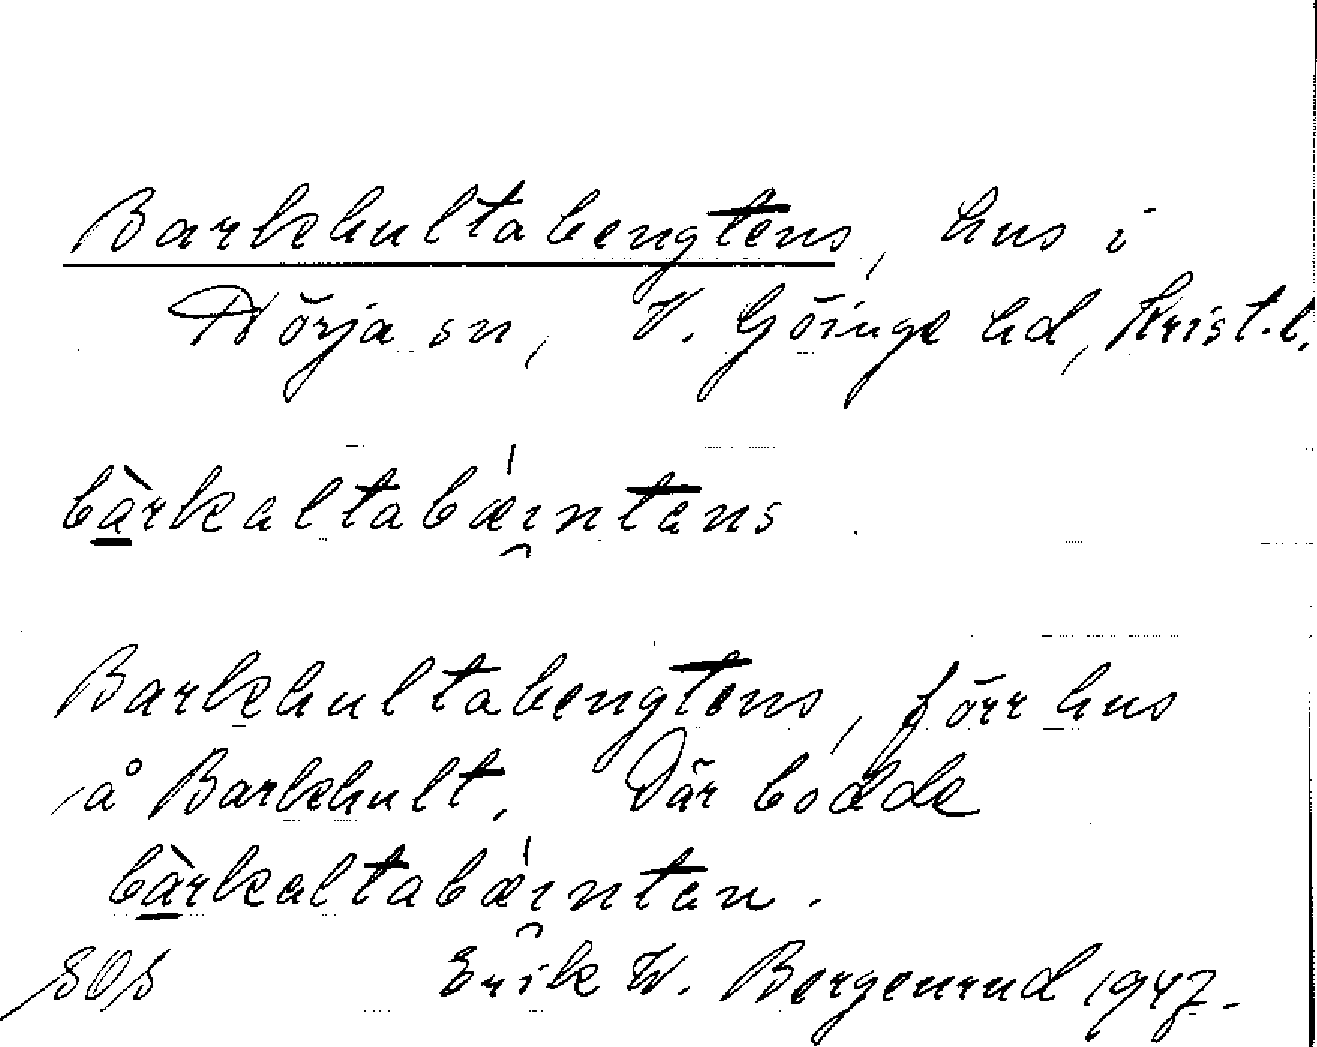 Barkhultabengtens, hus i
Nörja sn, V. Göinge hd, Krist.l.
bàrkaltabǽi̯ntəns
Barkhultabengtens, förr hus
å Barkhult. Där bodde
bàrkaltabǽi̯ntən.
SOS Erik W. Bergenrud 1947.